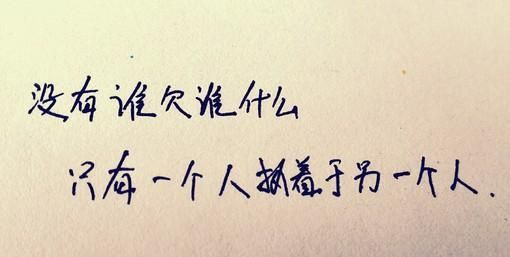 没有谁欠谁什么
只有一个人执着于另一个人.